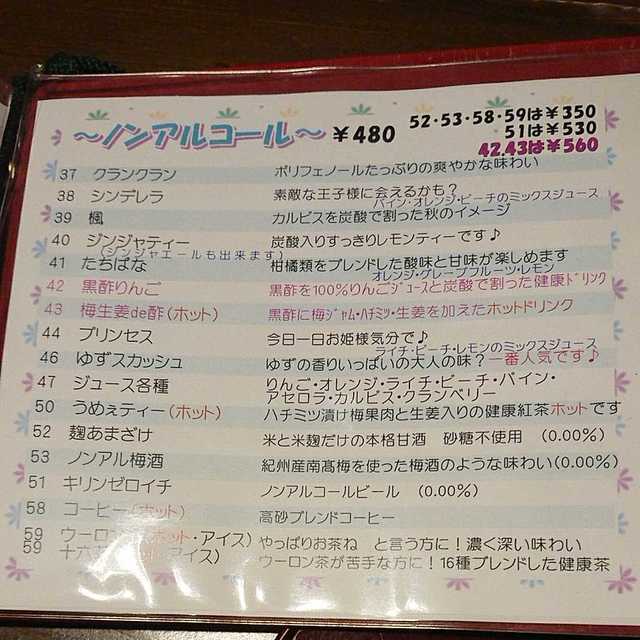 ～ノンアルコール～ ￥480
52・53・58・59は￥350
51は￥530
42.43は￥560
37 クランクラン ポリフェノールたっぷりの爽やかな味わい
38 シンデレラ 素敵な王子様に会えるかも？
パイン・オレンジ・ピーチのミックスジュース
39 楓 カルピスを炭酸で割った秋のイメージ
40 ジンジャティー 炭酸入りすっきりレモンティーです♪
(ジンジャエールも出来ます)
41 たちばな 柑橘類をブレンドした酸味と甘味が楽しめます
オレンジ・グレープフルーツ・レモン
42 黒酢りんご 黒酢を100％りんごジュースと炭酸で割った健康ドリンク
43 梅生姜de酢(ホット) 黒酢に梅ジャム・ハチミツ・生姜を加えたホットドリンク
44 プリンセス 今日一日お姫様気分で♪
ライチ・ピーチ・レモンのミックスジュース
46 ゆずスカッシュ ゆずの香りいっぱいの大人の味？一番人気です♪
47 ジュース各種 りんご・オレンジ・ライチ・ピーチ・パイン・
アセロラ・カルピス・クランベリー
50 うめぇティー(ホット) ハチミツ漬け梅果肉と生姜入りの健康紅茶ホットです
52 麹あまざけ 米と米麹だけの本格甘酒 砂糖不使用 (0.00％)
53 ノンアル梅酒 紀州産南高梅を使った梅酒のような味わい(0.00％)
51 キリンゼロイチ ノンアルコールビール (0.00％)
58 コーヒー(ホット) 高砂ブレンドコーヒー
59 ウーロン (ホット・アイス) やっぱりお茶ね と言う方に！濃く深い味わい
59 十六 アイス) ウーロン茶が苦手な方に！16種ブレンドした健康茶